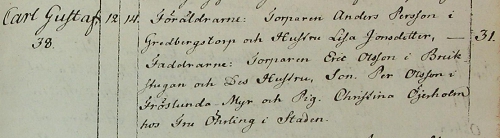 Carl Gustaf 12 14. Föräldrarne: Torparen Anders Persson i
38. Gredbergstorp och Hustru Lisa Jonsdotter, — 31.
Faddrarne: Torparen Eric Olsson i Bruk-
stugan och Des Hustru, Son. Per Olsson i
Fröslunda Myr och Pig. Christina Öjerholm
hos Fru Öhrling i Staden.